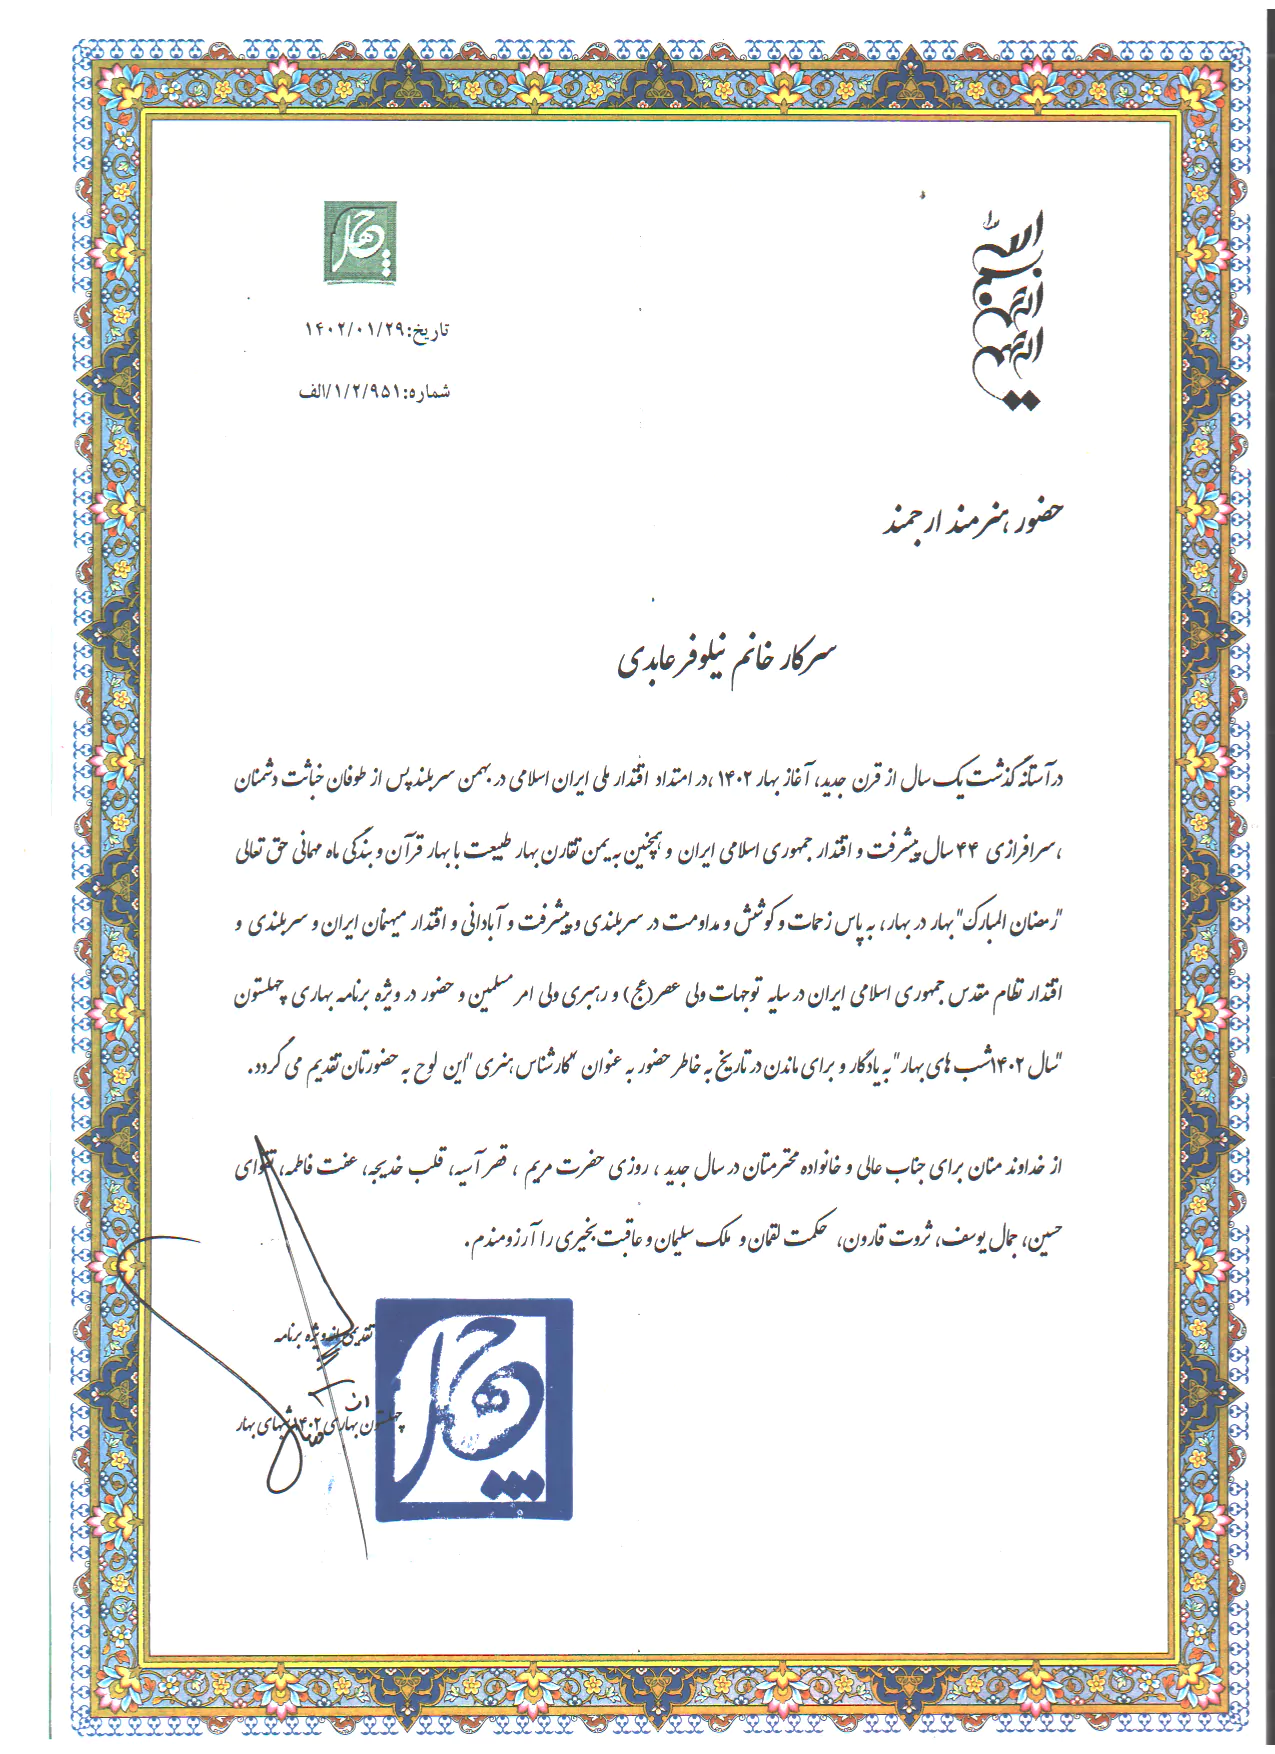 بسم الله الرحمن الرحیم
چهل
تاریخ:۱۴۰۲/۰۱/۲۹
شماره:۱/۲/۹۵۱/الف
حضور هنرمند ارجمند
سرکار خانم نیلوفر عابدی
در آستانه گذشت یک سال از قرن جدید، آغاز بهار ۱۴۰۲ ،در امتداد اقتدار ملی ایران اسلامی در بهمن سربلند پس از طوفان خباثت دشمنان
،سرافرازی ۴۴ سال پیشرفت و اقتدار جمهوری اسلامی ایران و همچنین به یمن تقارن بهار طبیعت با بهار قرآن و بندگی ماه مهمانی حق تعالی
"رمضان المبارک" بهار در بهار، به پاس زحمات و کوشش و مداومت در سربلندی و پیشرفت و آبادانی و اقتدار میهنمان ایران و سربلندی و
اقتدار نظام مقدس جمهوری اسلامی ایران در سایه توجهات ولی عصر(عج) و رهبری ولی امر مسلمین و حضور در ویژه برنامه بهاری چهلستون
"سال ۱۴۰۲شب های بهار" به یادگار و برای ماندن در تاریخ به خاطر حضور به عنوان "کارشناس هنری "این لوح به حضورتان تقدیم می گردد.
از خداوند منان برای جناب عالی و خانواده محترمتان در سال جدید ، روزی حضرت مریم ، قصر آسیه، قلب خدیجه، عفت فاطمه، تقوای
حسین، جمال یوسف، ثروت قارون، حکمت لقمان و ملک سلیمان و عاقبت بخیری را آرزومندم.
ویژه برنامه
چهلستون بهاری ۱۴۰۲ شبهای بهار
چهل